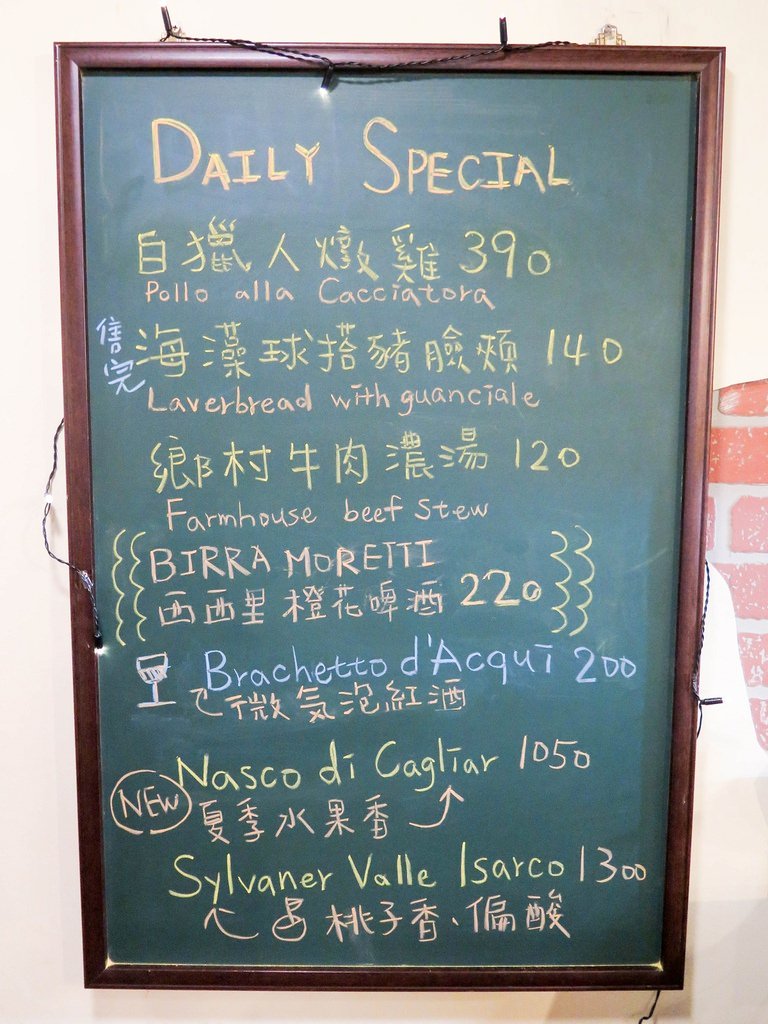 DAILY SPECIAL
白獵人燉雞 390
Pollo alla Cacciatora
售完 海藻球搭豬臉頰 140
Laverbread with guanciale
鄉村牛肉濃湯 120
Farmhouse beef Stew
BIRRA MORETTI
西西里橙花啤酒 220
Brachetto d'Acqui 200
微氣泡紅酒
Nasco di Cagliar 1050
NEW 夏季水果香
Sylvaner Valle Isarco 1300
桃子香、偏酸